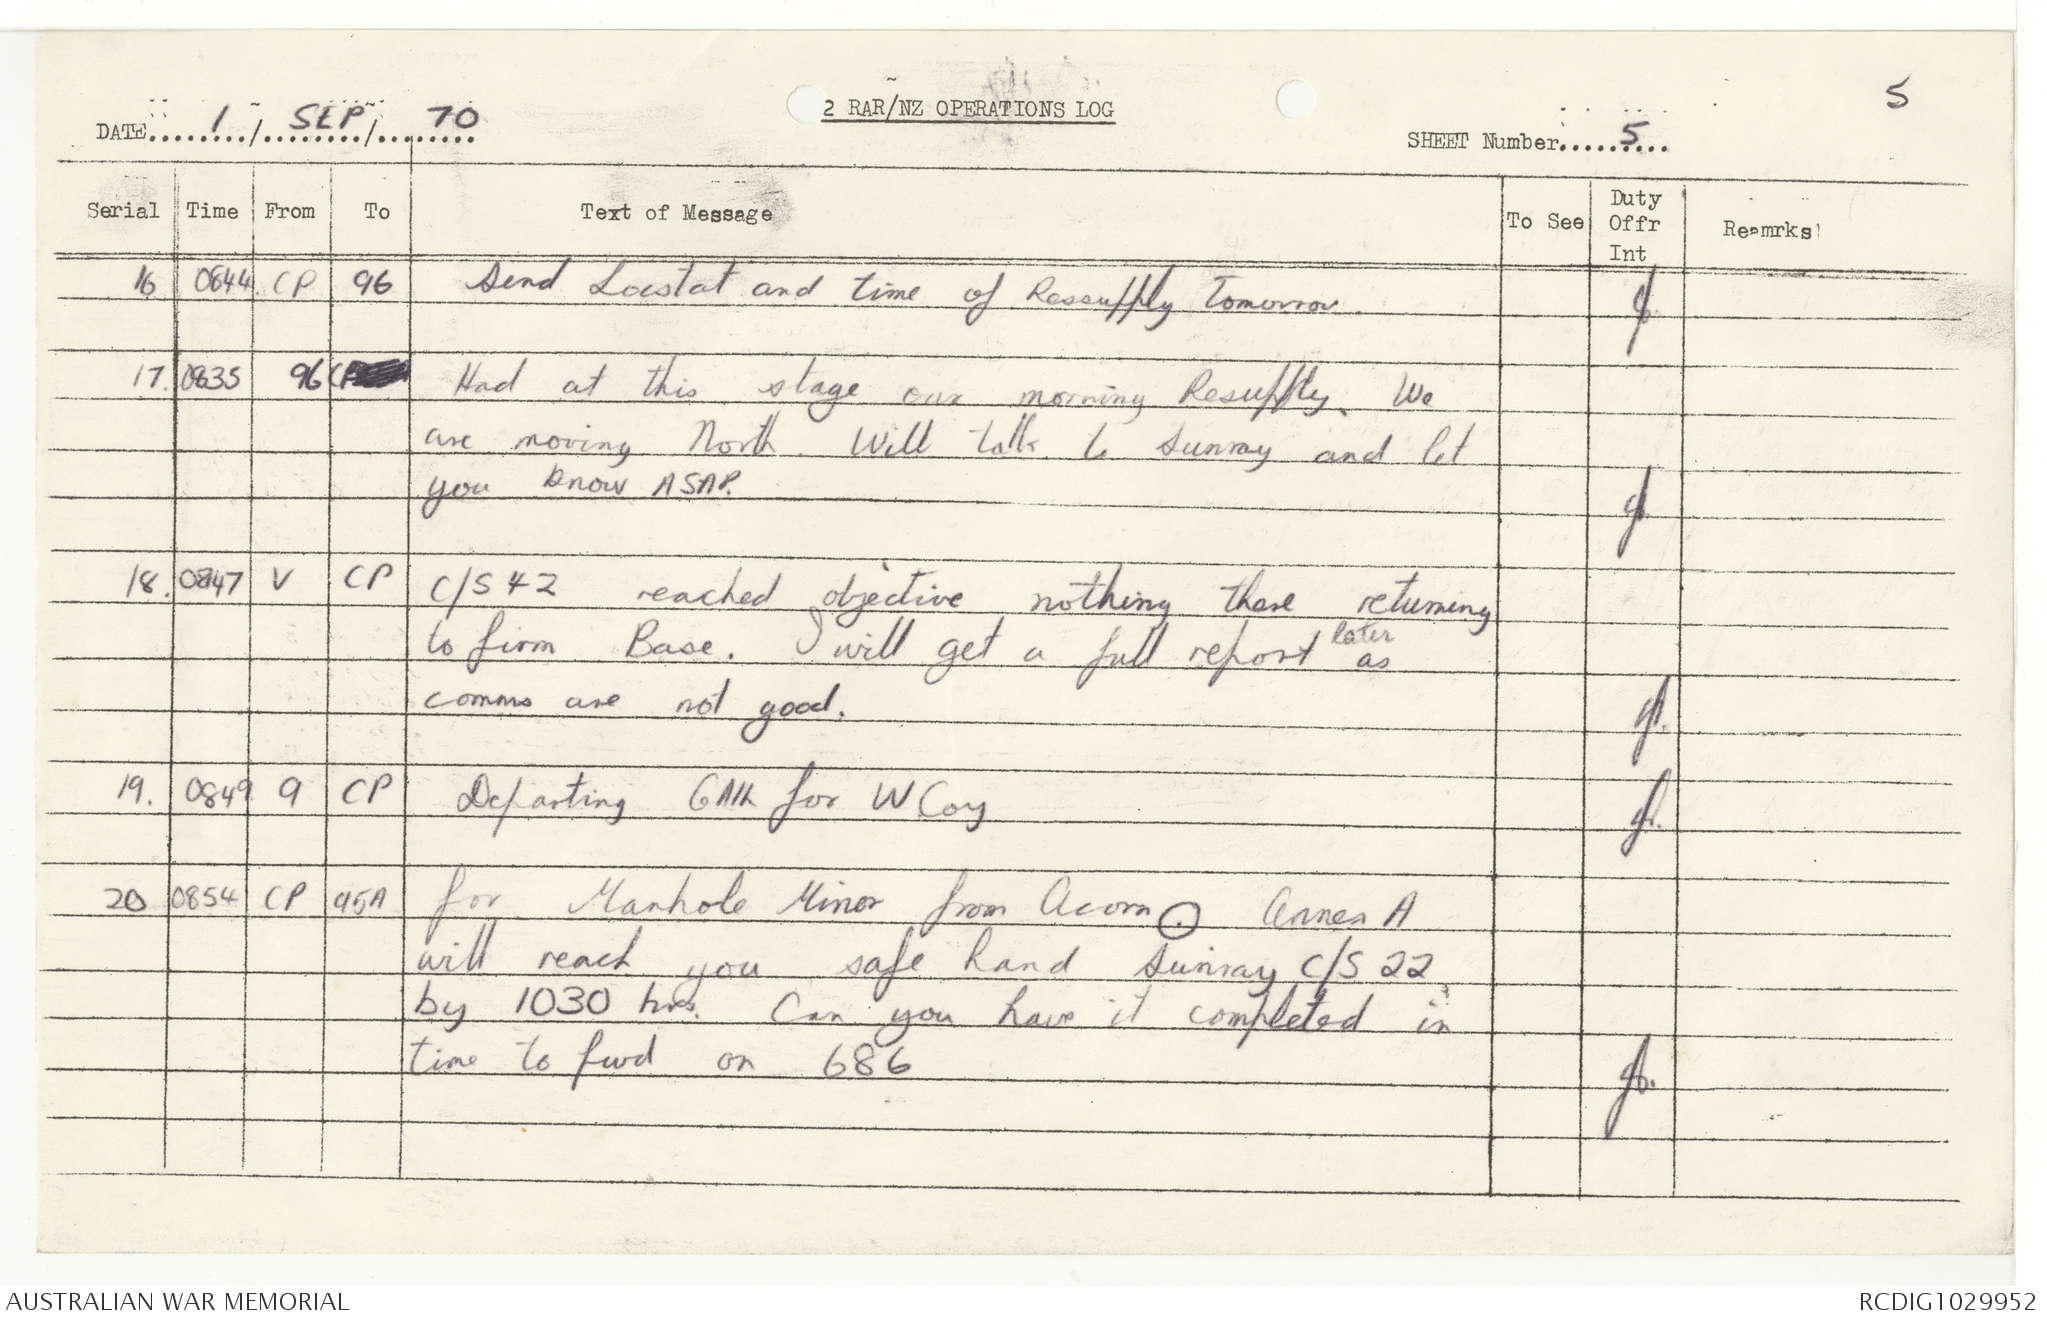 5
DATE 1 / SEP / 70
2 RAR/NZ OPERATIONS LOG
SHEET Number 5
Serial Time From To Text of Message To See Duty Offr Int Reamrks
16 0844 CP 96 Send Locstat and time of Resupply Tomorrow.
17. 0835 96 CP Had at this stage our morning Resupply. We
are moving North. Will talk to Sunray and let
you know ASAP.
18. 0847 V CP C/S 42 reached objective nothing there returning
to firm Base. I will get a full report later as
comms are not good.
19. 0849 9 CP Departing for W Coy
20 0854 CP 95A for Manhole Minor from Acorn. Annex A
will reach you safe hand Sunray C/S 22
by 1030 hrs. Can you have it completed in
time to fwd on 686
AUSTRALIAN WAR MEMORIAL
RCDIG1029952